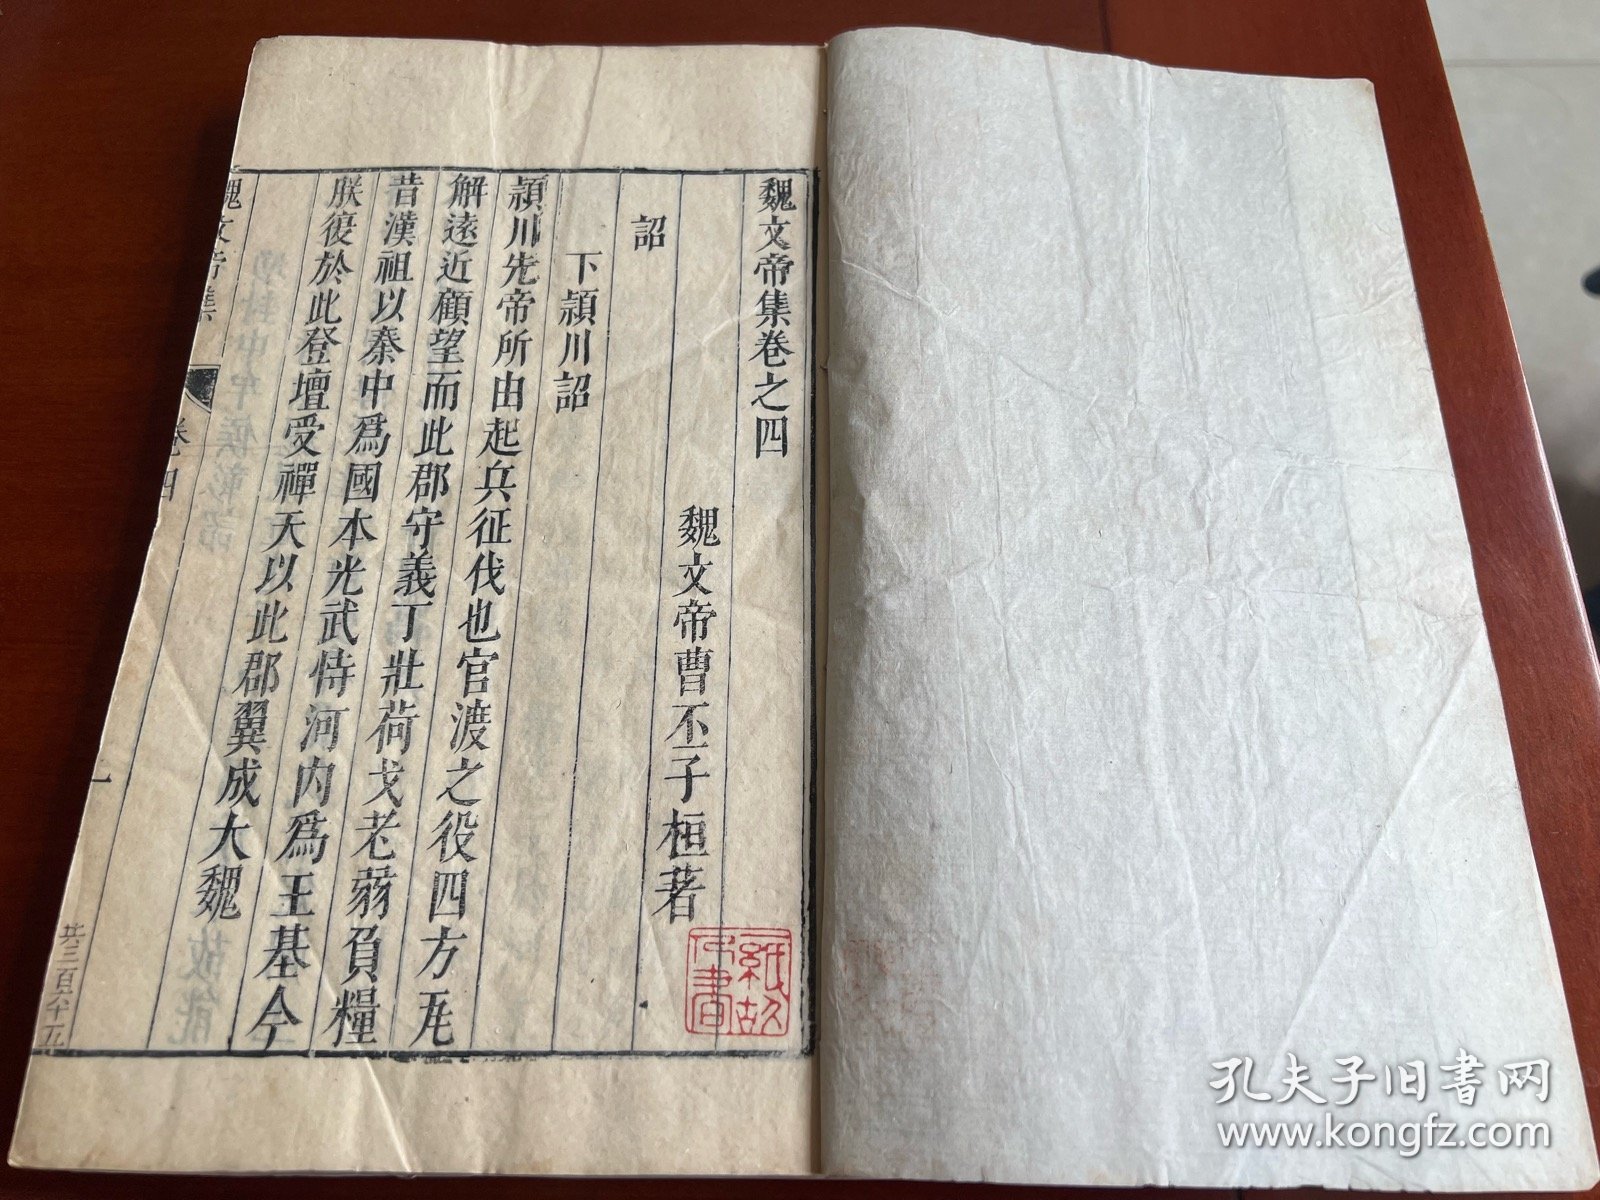 魏文帝集卷之四
魏文帝曹丕子桓著
詔
下潁川詔
潁川先帝所由起兵征伐也官渡之役四方瓦
解遠近顧望而此郡守義丁壯荷戈老弱負糧
昔漢祖以秦中爲國本光武恃河内爲王基今
朕復於此登壇受禪天以此郡翼成大魏
魏文帝集
卷四
一
共三百六十五
孔夫子旧书网
www.kongfz.com